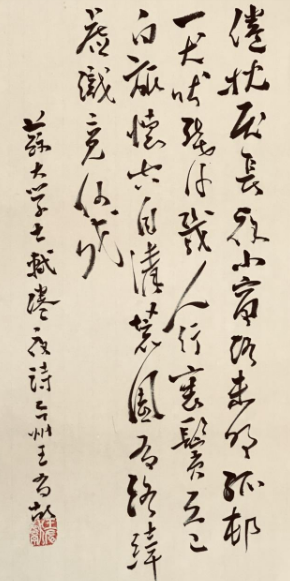 倦枕厌長夜小窗終未明孤邨
一犬吠殘月幾人行衰鬢久已
白旅懷空自清荒園有絡緯
虛織竟何成
蘇大学士軾倦夜詩 州王